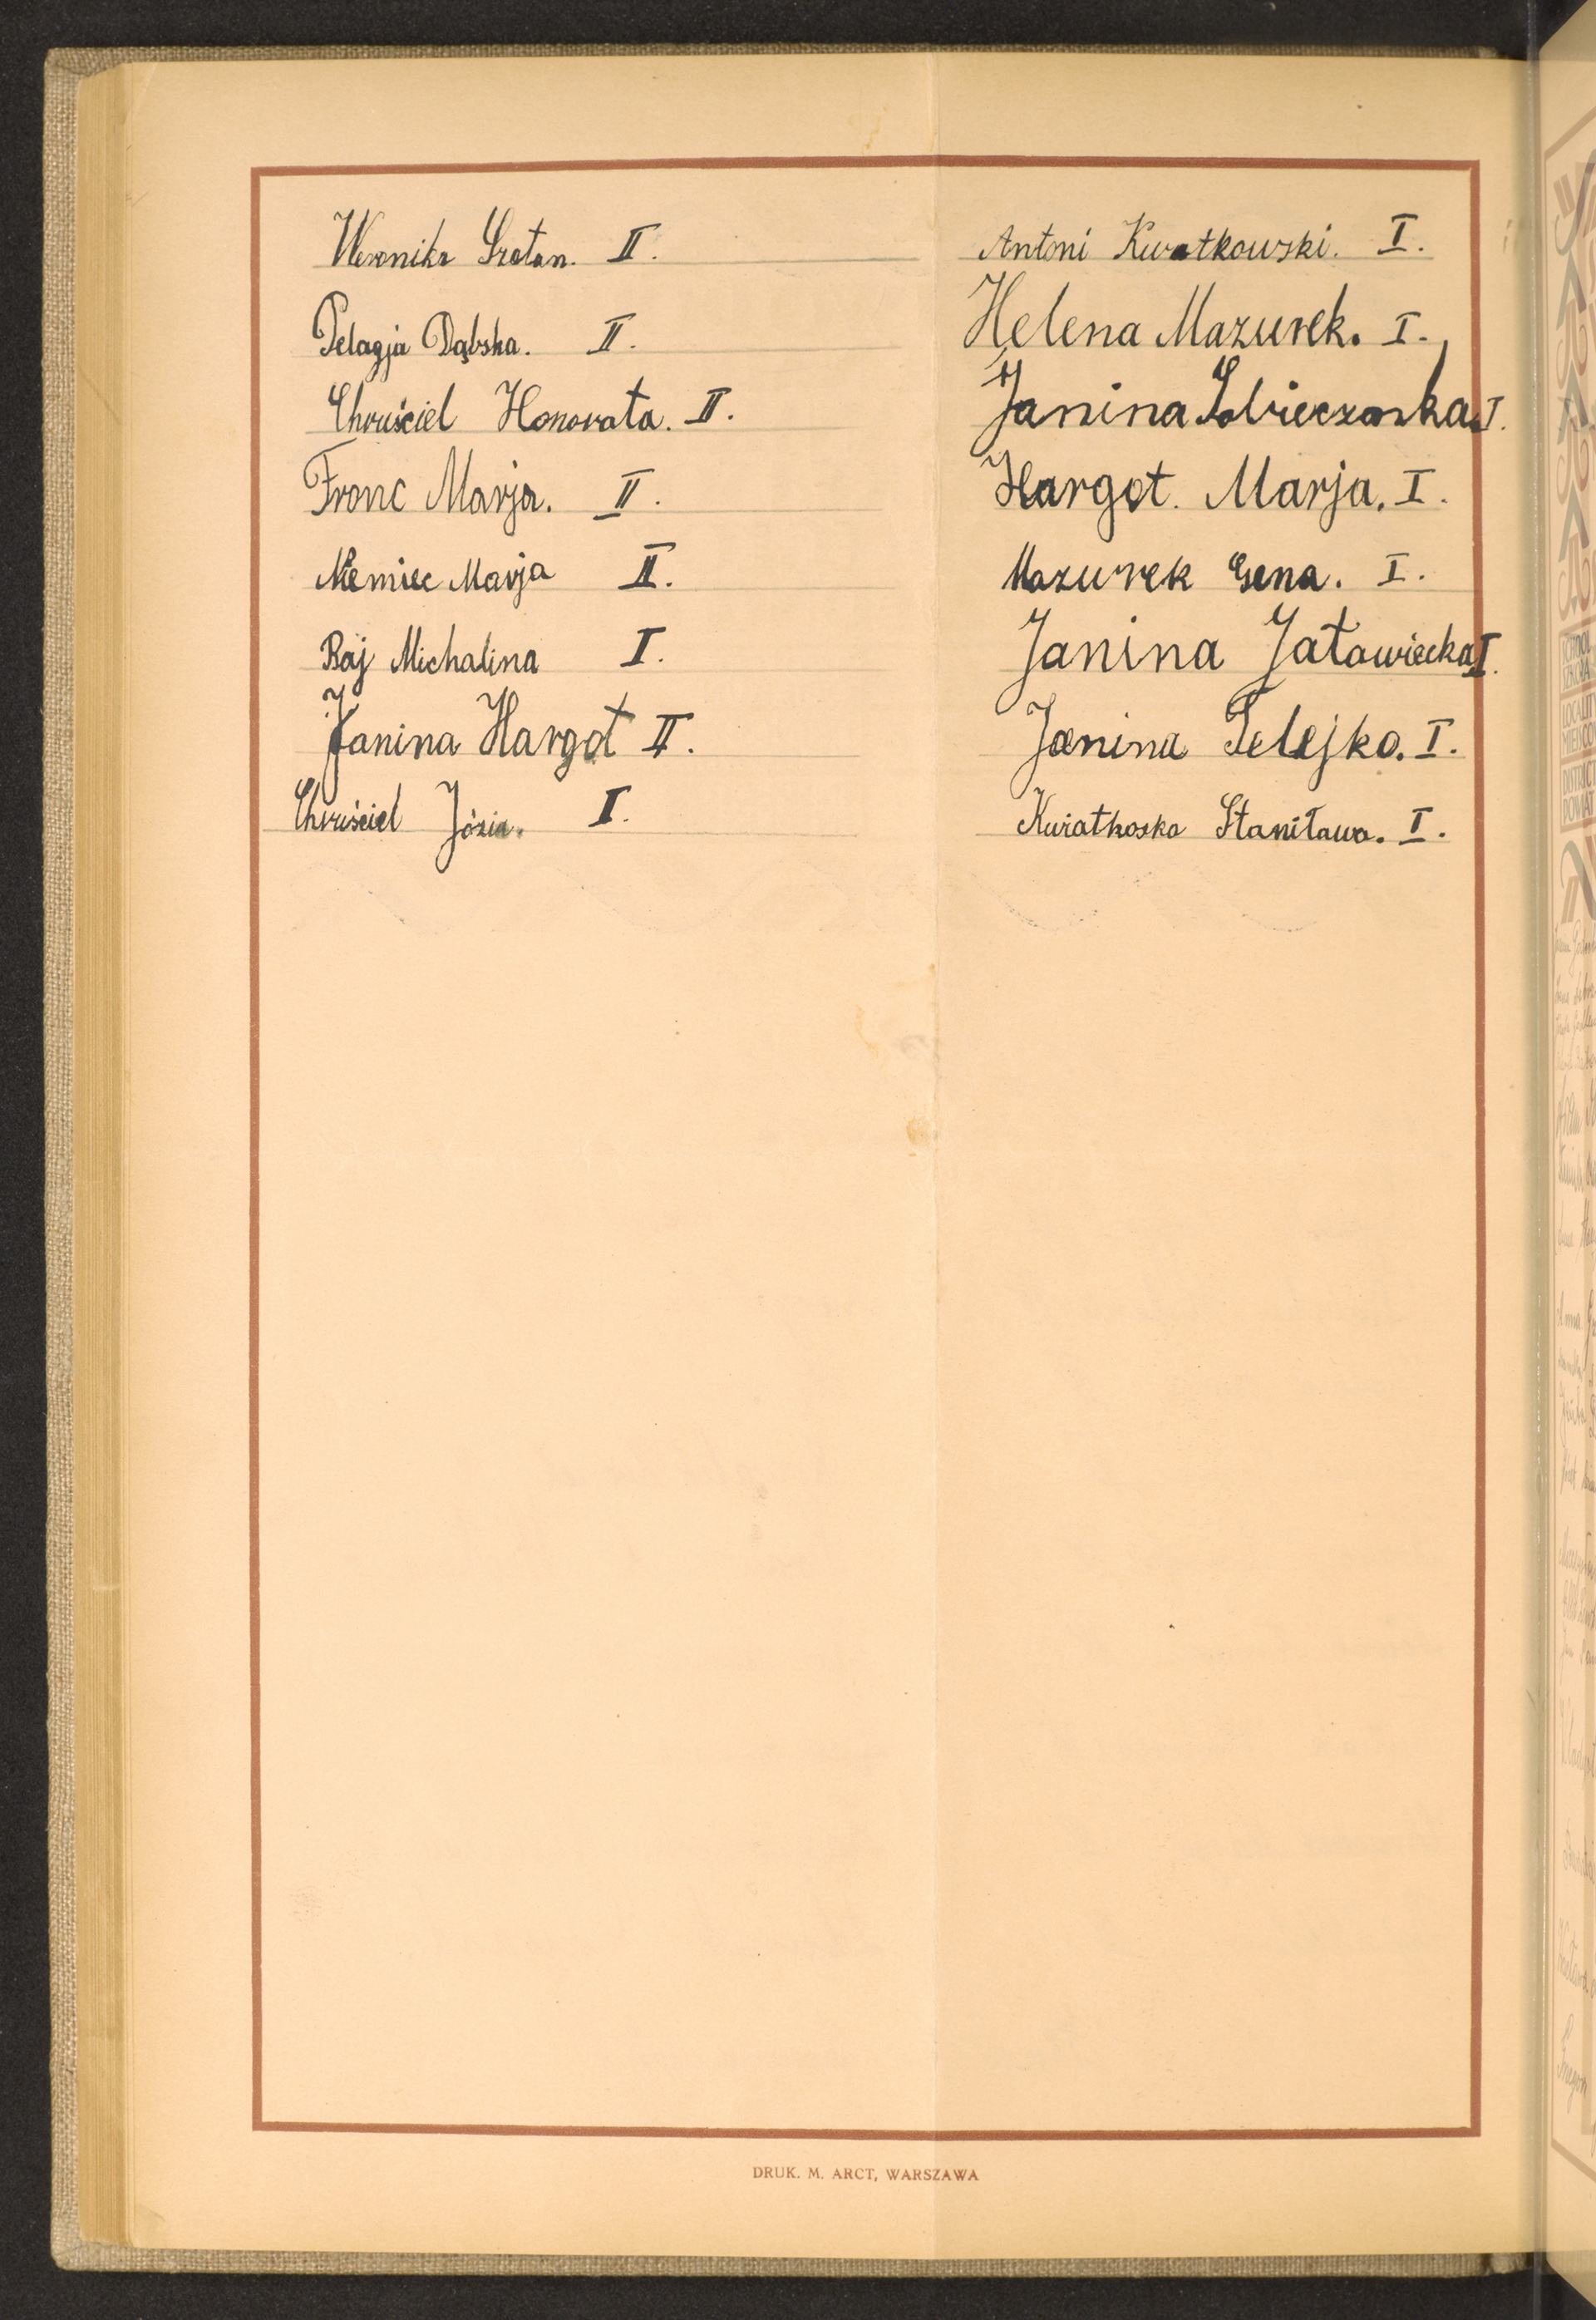 Weronika Szotan. II.
Pelagja Dąbska. II.
Chruściel Honorata. II.
Fronc Marja. II.
Niemiec Marja II.
Raj Michalina I.
Janina Hargot II.
Chruściel Józia. I.
Antoni Kwatkowski. I.
Helena Mazurek. I.
Janina I.
Hargot. Marja. I.
Mazurek Gena. I.
Janina Jatawiecka I.
Janina Pelejko. I.
Kwiatkoska Staniława. I.
DRUK. M. ARCT, WARSZAWA